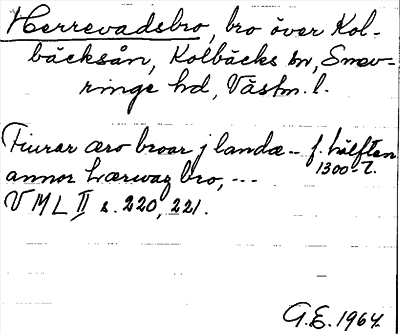 Herrevadsbro, bro över Kol-
bäcksån, Kolbäcks sn, Snev-
ringe hd, Västm. l.
Fiurar æro broar j landæ -- f. hälften
1300-t.
annor hærwaz bro, ---
V M L II s. 220, 221.
G.E. 1964